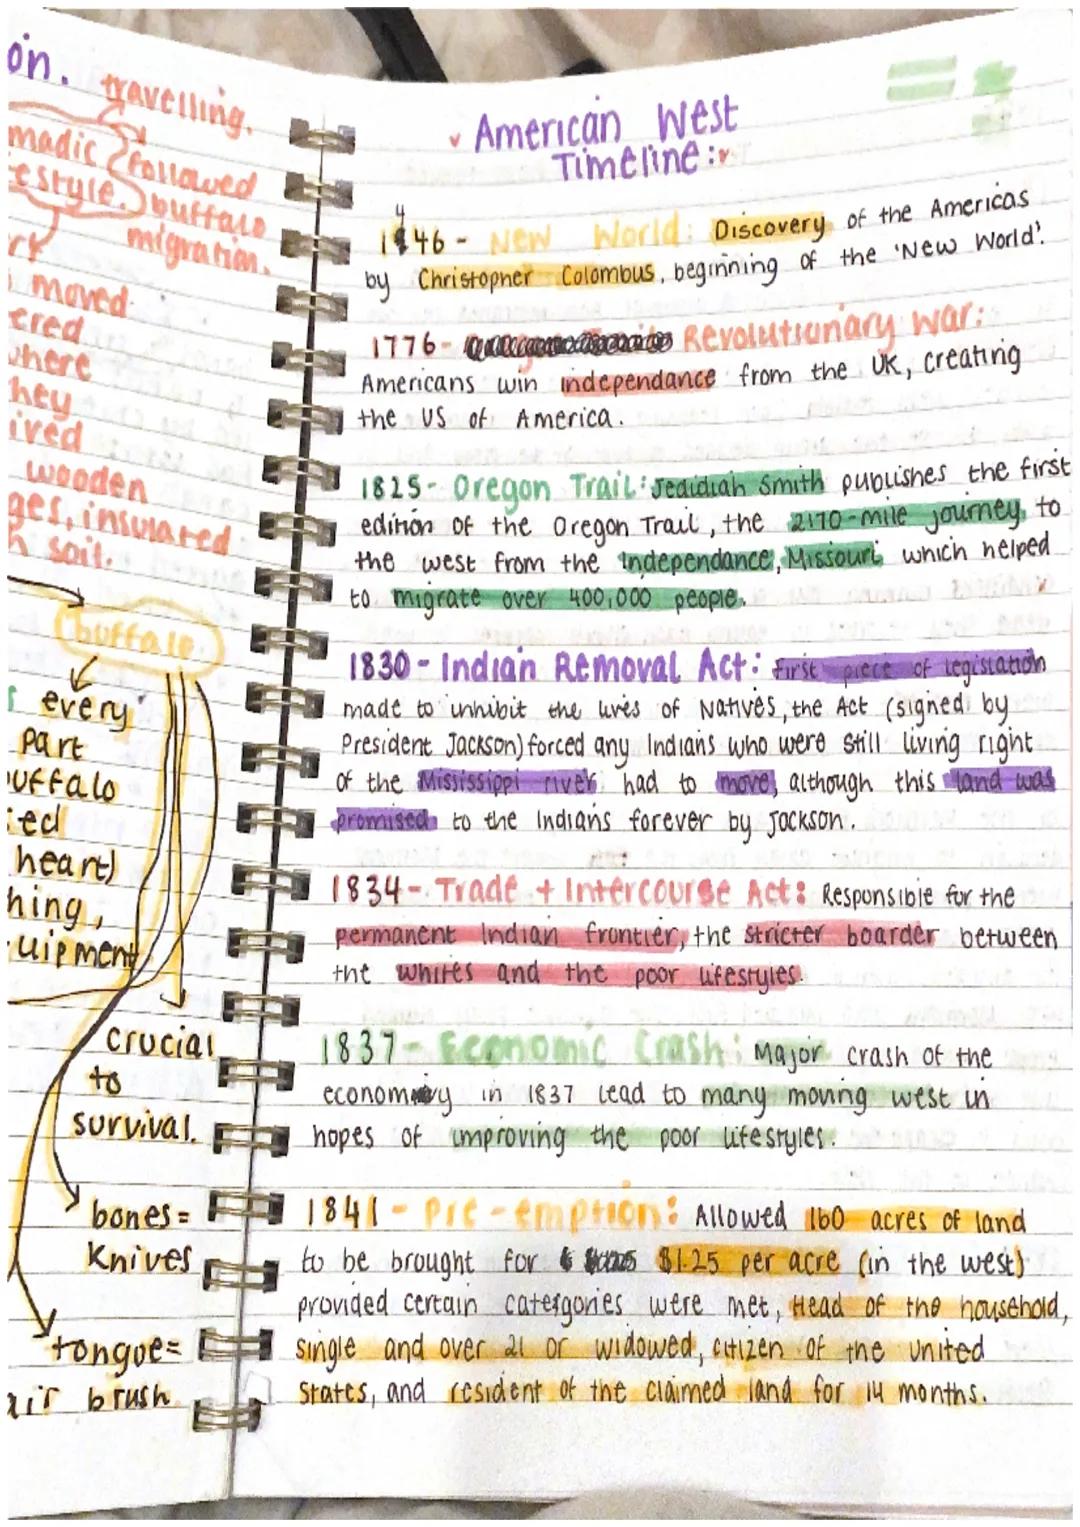 on.
travelling.
madic
followed
estyle.
buffalo
migration.
moved
ered
where
hey
ived
wooden
ges, insulated
soil.
buffalo
every
part
uffalo
ed
heart)
hing,
uipment
crucial
to
survival.
bones =
Knives
tongue=
air brush
American West
Timeline:
4
1846 - New World: Discovery of the Americas
by Christopher Colombus, beginning of the 'New World'.
1776- Revolutionary War:
Americans win independance from the UK, creating
the US of America.
1825- Oregon Trail: Jedidiah Smith publishes the first
edition of the Oregon Trail, the 2170-mile journey, to
the west from the Independance, Missouri which helped
to migrate over 400,000 people.
1830- Indian Removal Act: First piece of legislation
made to inhibit the lives of Natives, the Act (signed by
President Jackson) forced any Indians who were still living right
of the Mississippi river had to move, although this land was
promised to the Indians forever by Jackson.
1834- Trade + Intercourse Act: Responsible for the
permanent Indian frontier, the stricter boarder between
the whites and the poor lifestyles.
1837- Economic Crash: Major crash of the
economy in 1837 lead to many moving west in
hopes of improving the poor lifestyles.
1841- Pre-emption: Allowed 160 acres of land
to be brought for $1.25 per acre (in the west)
provided certain catergories were met, Head of the household,
single and over 21 or widowed, citizen of the united
states, and resident of the claimed land for 14 months.